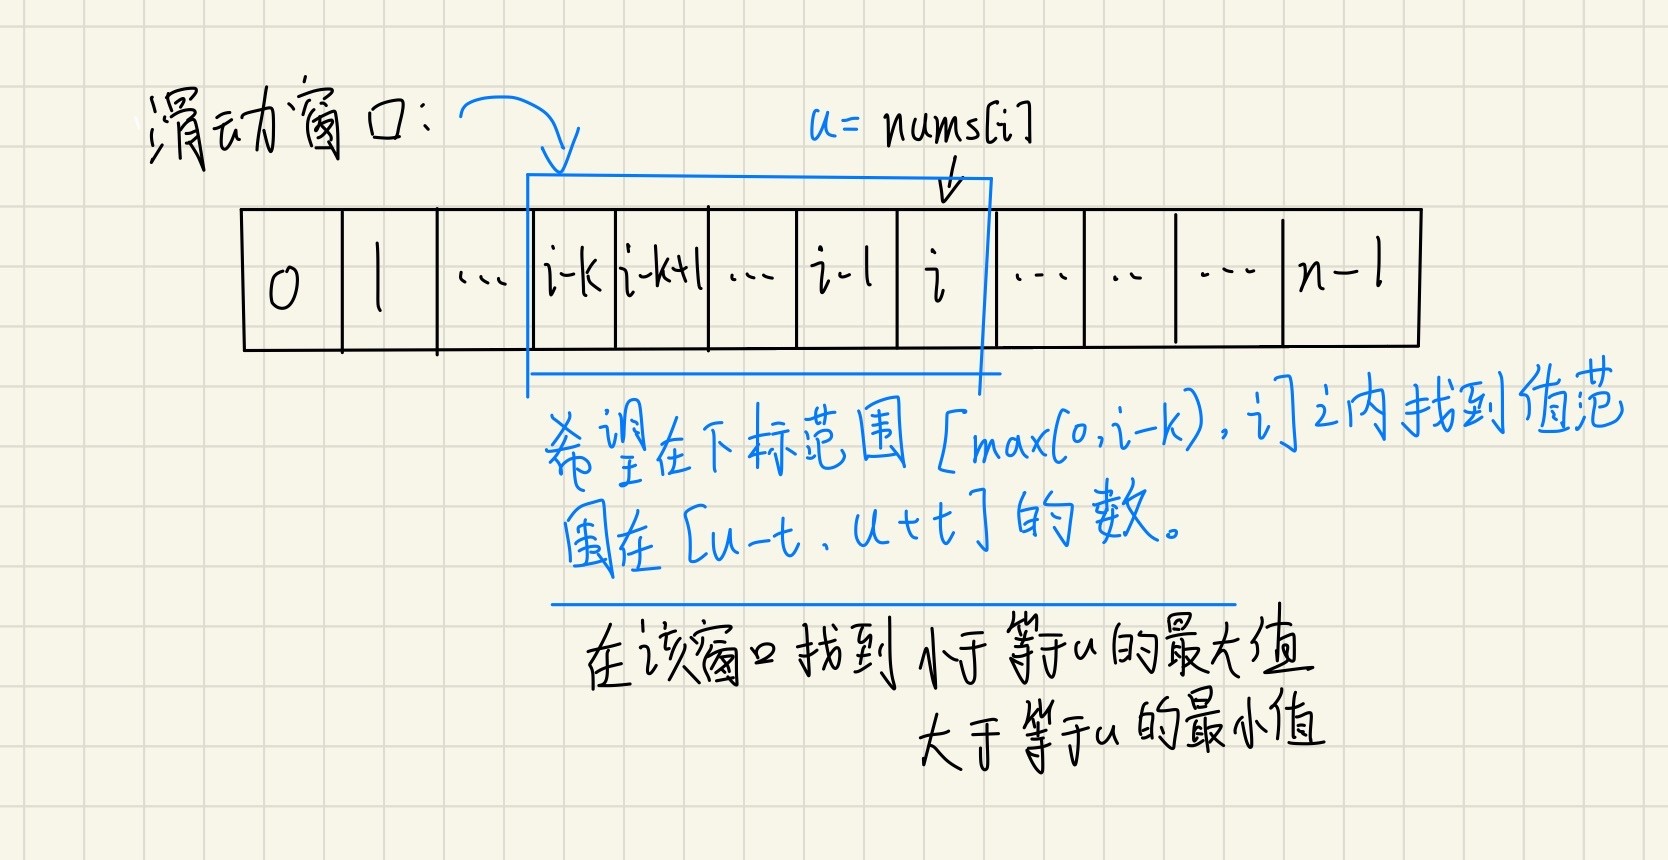 滑动窗口:
u= nums[i]
0 1 ... i-k i-k+1 ... i-1 i ... .. ... n-1
希望在下标范围 [max(0,i-k), i] 之内找到值范
围在 [u-t, u+t] 的数。
在该窗口找到 小于等于u的最大值
大于等于u的最小值